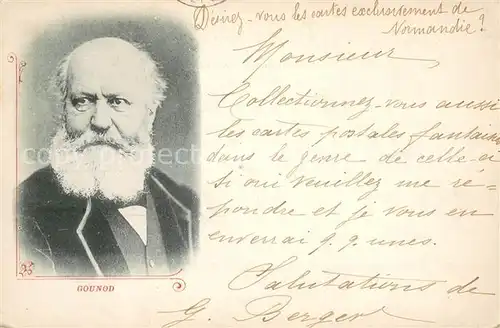 Désirez-vous les cartes exclusivement de
Normandie?
Monsieur
Collectionnez-vous aussi
les cartes postales fantaisie
dans le genre de celle-ci
si oui veuillez me ré-
pondre et je vous en
enverrai q.q. unes.
Salutations de
G. Berger
GOUNOD